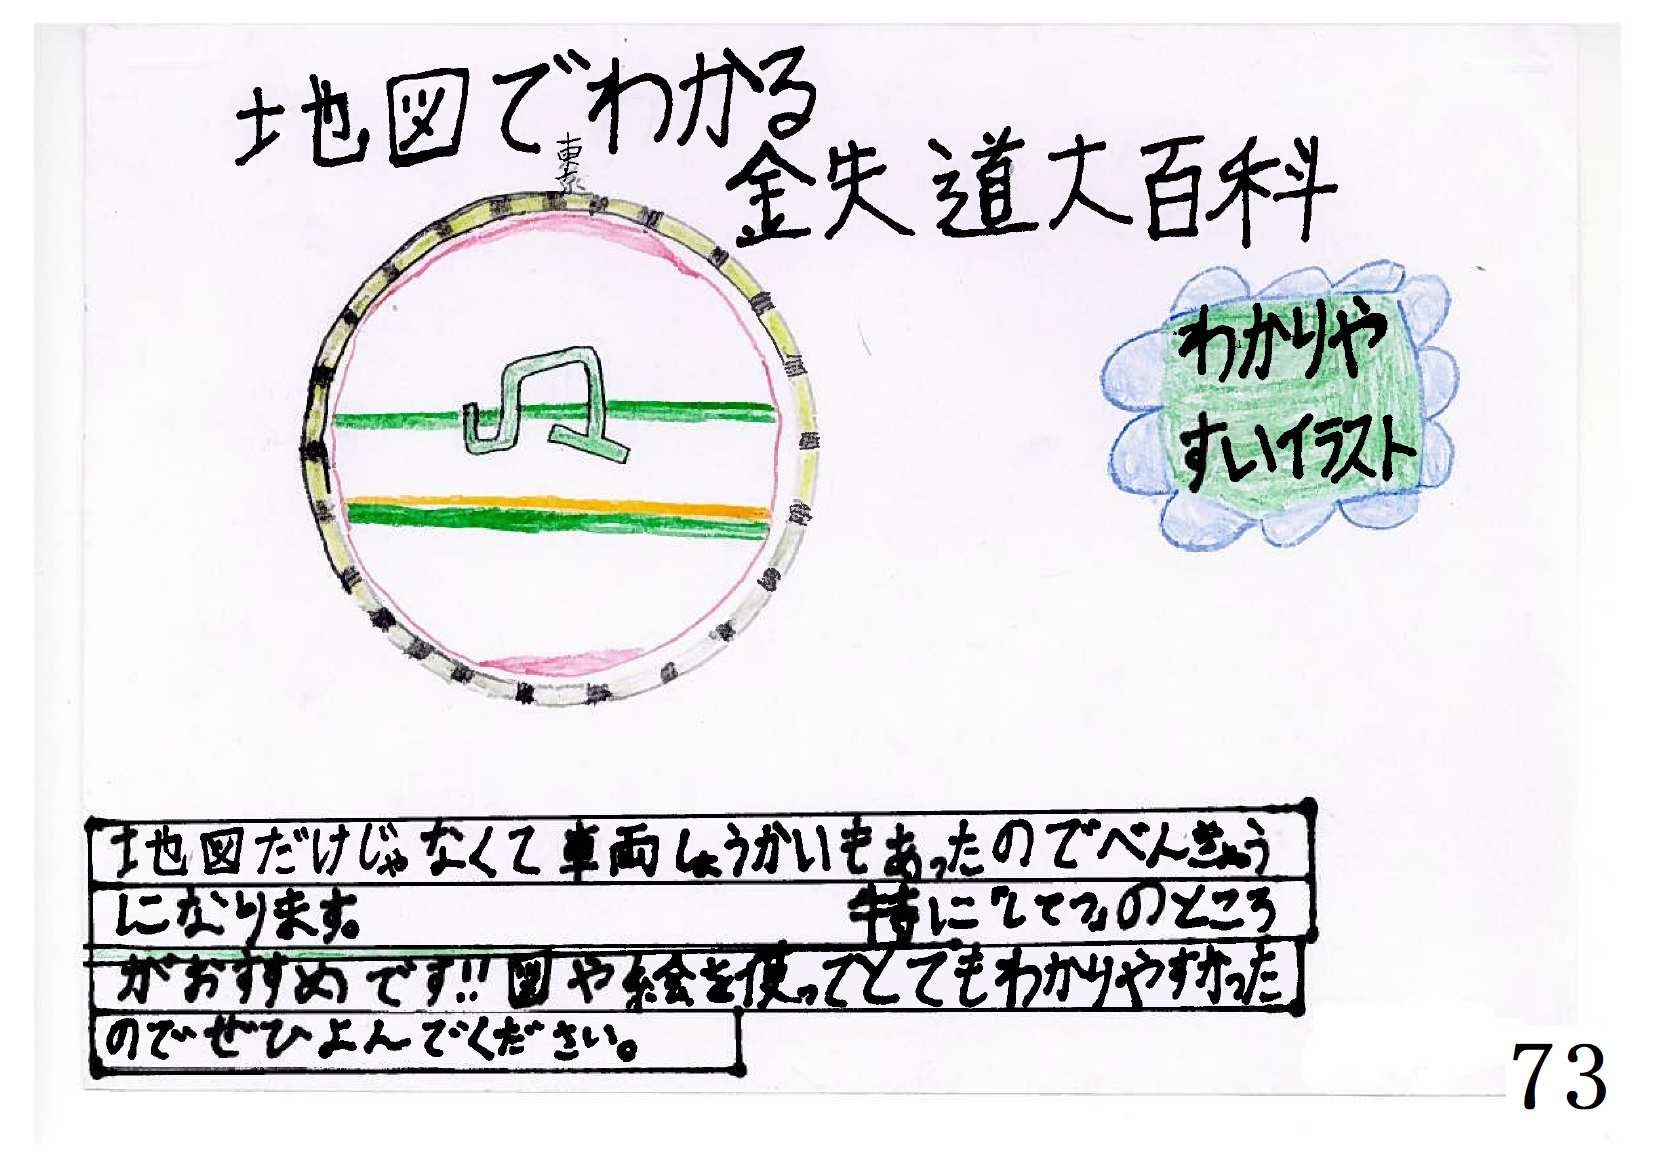 地図でわかる
鉄道大百科
東京
JR
わかりや
すいイラスト
地図だけじゃなくて車両しょうかいもあったのでべんきょう
になります。 特に「してつ」のところ
がおすすめです!!図や絵を使ってとてもわかりやすかった
のでぜひよんでください。
73